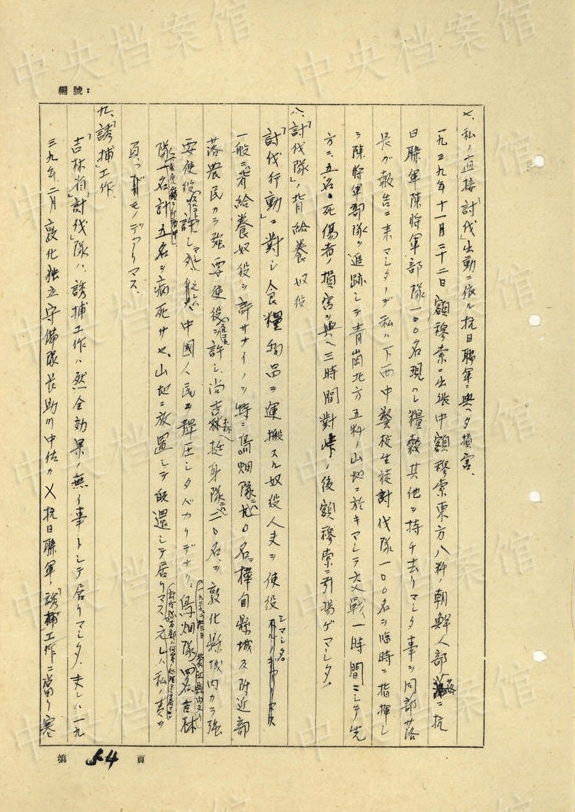 中央档案馆
編號：
七、私ノ直接「討伐」出動ニ依ル抗日聯軍ニ與ヘタ損害、
一九三九年十一月二十二日額穆索ニ出張中額穆索東方八粁朝鮮人部落ニ抗
日聯軍陳將軍部隊一〇〇名現ハレ糧穀其他ヲ持チ去リマシタ事ヲ同部落
長ガ報告ニ来マシタノデ私ハ下西中警校生徒討伐隊一〇〇名ヲ臨時ニ指揮シ
陳將軍部隊ヲ追跡シテ青崗北方五粁ノ山地ニ於キマシテ交戰一時間ニシテ先
方ニ五名ノ死傷者ノ損害ヲ與ヘ三時間對峙ノ後額穆索ニ引揚ゲマシタ。
八、「討伐隊」ノ背給養奴役
「討伐行動」ニ對シ食糧物品ヲ運搬スル奴役人夫ヲ使役シマシタ
一般ニ背給養奴役ヲ許サナイノヲ特ニ馬畑隊ニ九〇名ヲ樺甸縣城及附近部
落農民カラ強要使役ヲ許シ尚吉林挺身隊ニ二〇名ヲ敦化縣城内カラ強
要使役ヲ許シ中國人民ヲ彈圧シタバカリデナク馬畑隊四名吉林
隊一名計五名ヲ病死サセ、山地ニ放置シテ帰還シテ居リマス
負フベキモノデアリマス。
九、「誘捕」工作
吉林省「討伐」隊ハ誘捕工作ハ然全効果ノ無イ事トシテ居リマシタ、夫レハ一九
三九年二月敦化独立守備隊長 中佐ガ 抗日聯軍ノ「誘捕」工作ニ當リ寒
第 54 頁